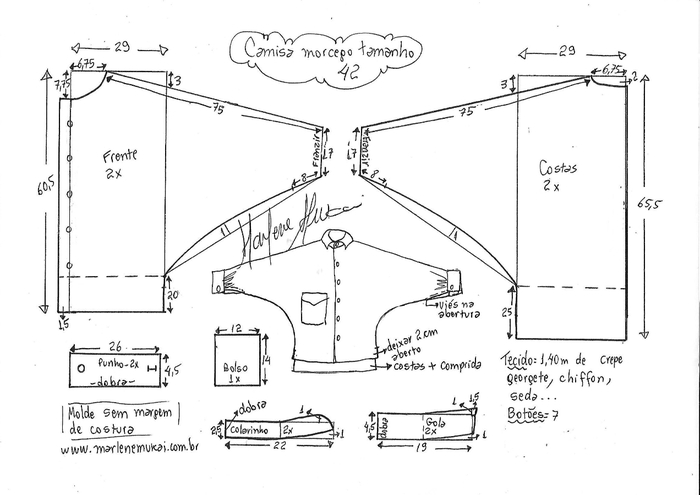 Camisa morcego tamanho
42
29
6,75
7,75
3
75
Frente
2x
60,5
Franzir
17
8
11
20
1,5
29
6,75
2
3
75
Costas
2x
65,5
Franzir
17
8
11
25
Marlene Mukai
Viés na
abertura
deixar 2 cm
aberto
costas + comprida
26
Punho-2x
-dobra-
4,5
12
Bolso
1x
14
Molde sem margem
de costura
www.marlenemukai.com.br
dobra
1
2,5
Colarinho 2x
1
22
1
1,5
4,5
dobra
Gola
2x
1
19
Tecido: 1,40m de crepe
georgete, chiffon,
seda...
Botões=7